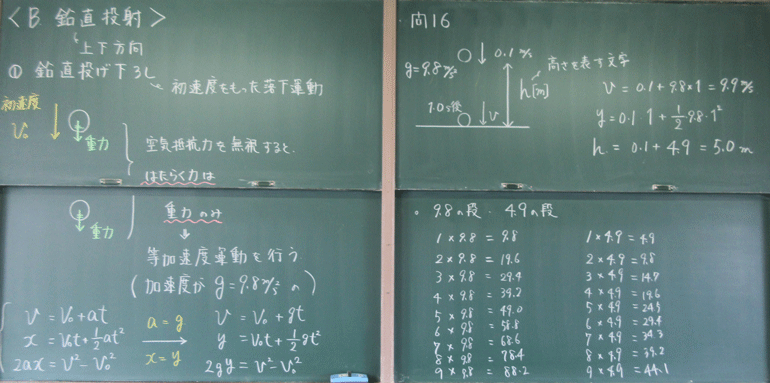 <B 鉛直投射>
上下方向
① 鉛直投げ下ろし
初速度をもった落下運動
初速度
V₀
重力
空気抵抗力を無視すると、
はたらく力は
重力
重力のみ
↓
等加速度運動を行う
(加速度が g=9.8m/s² の)
v = v₀ + at
x = v₀t + 1/2 at²
2ax = v² - v₀²
a = g
→
x = y
v = v₀ + gt
y = v₀t + 1/2 gt²
2gy = v² - v₀²
問16
g=9.8m/s²
0.1m/s
h[m]
高さを表す文字
1.0s後
v
v = 0.1 + 9.8×1 = 9.9m/s
y = 0.1・1 + 1/2 9.8・1²
h = 0.1 + 4.9 = 5.0m
。9.8の段・4.9の段
1×9.8 = 9.8
2×9.8 = 19.6
3×9.8 = 29.4
4×9.8 = 39.2
5×9.8 = 49.0
6×9.8 = 58.8
7×9.8 = 68.6
8×9.8 = 78.4
9×9.8 = 88.2
1×4.9 = 4.9
2×4.9 = 9.8
3×4.9 = 14.7
4×4.9 = 19.6
5×4.9 = 24.5
6×4.9 = 29.4
7×4.9 = 34.3
8×4.9 = 39.2
9×4.9 = 44.1